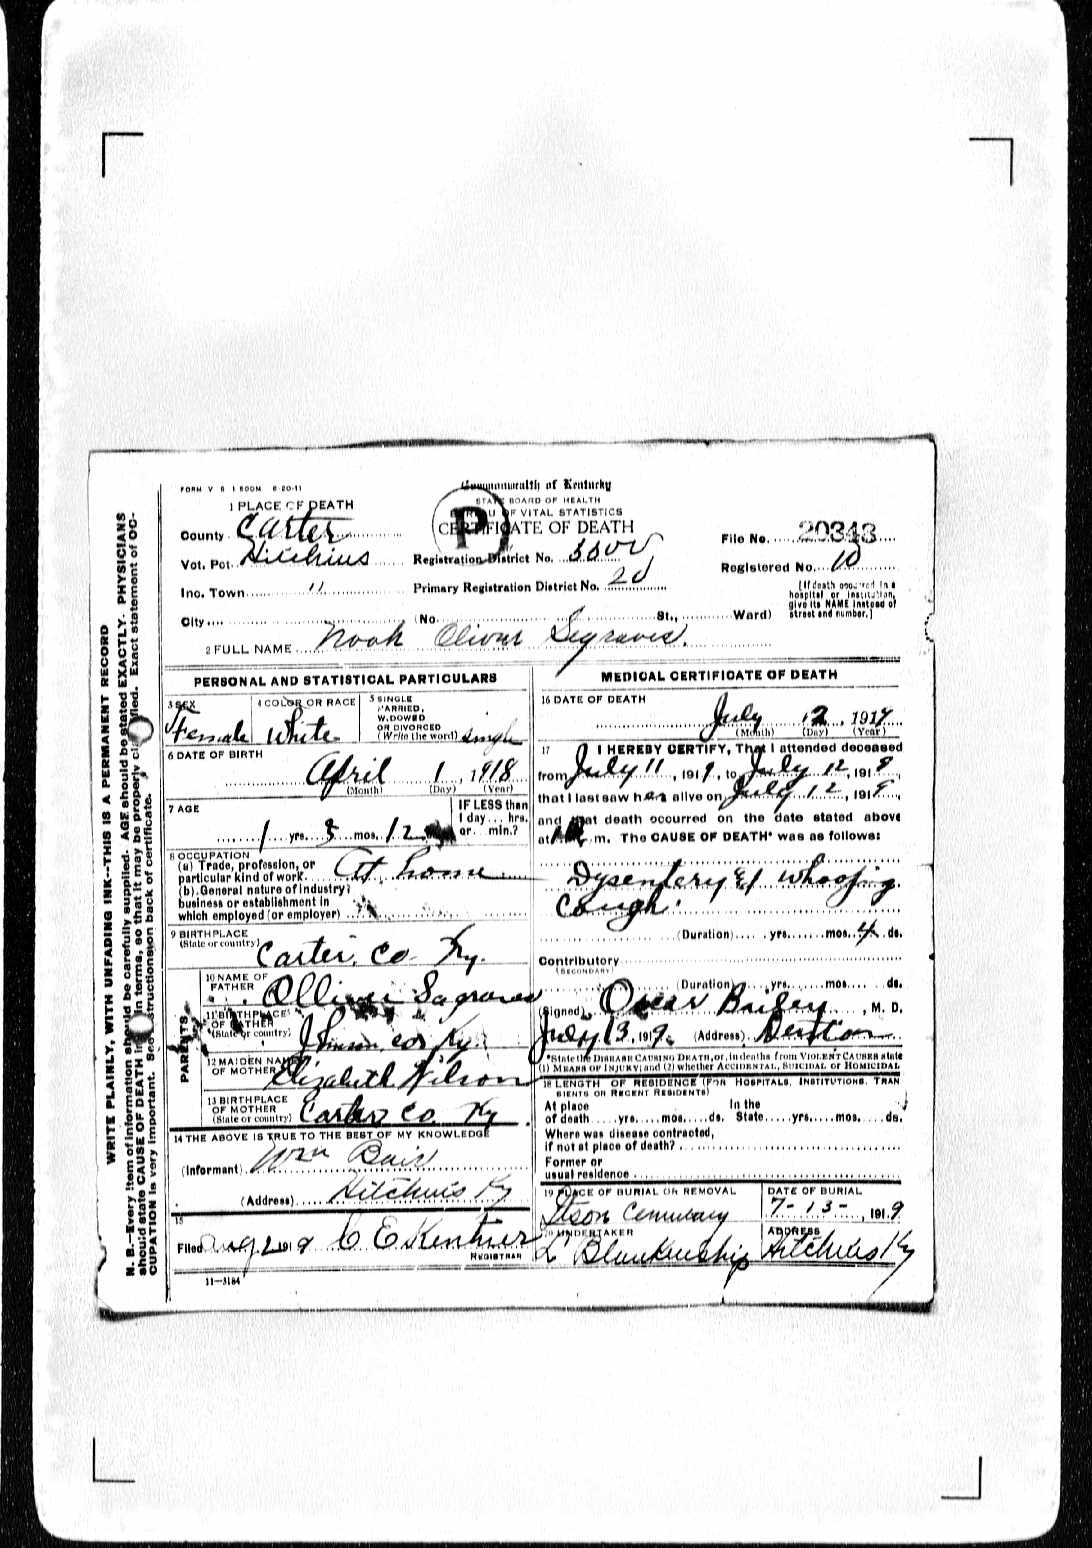 FORM V S 1 500M 8-20-11
Commonwealth of Kentucky
STATE BOARD OF HEALTH
BUREAU OF VITAL STATISTICS
CERTIFICATE OF DEATH
P
1 PLACE OF DEATH
County Carter
Vot. Pct. Hitchins
Inc. Town "
City
Registration District No.
Primary Registration District No.
(No. St., Ward)
File No. 20343
Registered No. 10
[If death occurred in a
hospital or institution,
give its NAME instead of
street and number.]
2 FULL NAME Noah Oliver Segraves.
PERSONAL AND STATISTICAL PARTICULARS
3 SEX
Female
4 COLOR OR RACE
White
5 SINGLE
MARRIED,
WIDOWED
OR DIVORCED
(Write the word) single
6 DATE OF BIRTH
April 1, 1918
(Month) (Day) (Year)
7 AGE
1 yrs. 3 mos. 12
IF LESS than
1 day... hrs.
or... min.?
8 OCCUPATION
(a) Trade, profession, or
particular kind of work At home
(b) General nature of industry
business or establishment in
which employed (or employer)
9 BIRTHPLACE
(State or country) Carter Co Ky.
PARENTS
10 NAME OF
FATHER Olliver Sagraves
11 BIRTHPLACE
OF FATHER
(State or country) Johnson co Ky
12 MAIDEN NAME
OF MOTHER Elizabeth Wilson
13 BIRTHPLACE
OF MOTHER
(State or country) Carter Co Ky
14 THE ABOVE IS TRUE TO THE BEST OF MY KNOWLEDGE
(Informant) Wm Bair
(Address) Hitchins Ky
15
Filed Aug 2 1919 C E Kentner
REGISTRAR
11-3184
MEDICAL CERTIFICATE OF DEATH
16 DATE OF DEATH
July 12, 1919
(Month) (Day) (Year)
17 I HEREBY CERTIFY, That I attended deceased
from July 11, 1919, to July 12, 1919,
that I last saw her alive on July 12, 1919,
and that death occurred on the date stated above
at m. The CAUSE OF DEATH* was as follows:
Dysentery & Whooping
Cough.
(Duration) yrs. mos. 4 ds.
Contributory
(SECONDARY)
(Duration) yrs. mos. ds.
(Signed) Oscar Bailey, M. D.
July 13, 1919. (Address) Denton
*State the DISEASE CAUSING DEATH, or, in deaths from VIOLENT CAUSES state
(1) MEANS OF INJURY; and (2) whether ACCIDENTAL, SUICIDAL or HOMICIDAL
18 LENGTH OF RESIDENCE (FOR HOSPITALS, INSTITUTIONS, TRAN
SIENTS OR RECENT RESIDENTS)
At place In the
of death yrs. mos. ds. State yrs. mos. ds.
Where was disease contracted,
if not at place of death?
Former or
usual residence
19 PLACE OF BURIAL OR REMOVAL
Cemetary
DATE OF BURIAL
7-13-, 1919
20 UNDERTAKER
L Blankenship
ADDRESS
Hitchins Ky
WRITE PLAINLY, WITH UNFADING INK--THIS IS A PERMANENT RECORD
N. B.--Every item of information should be carefully supplied. AGE should be stated EXACTLY. PHYSICIANS
should state CAUSE OF DEATH in plain terms, so that it may be properly classified. Exact statement of OC-
CUPATION is very important. See instructions on back of certificate.